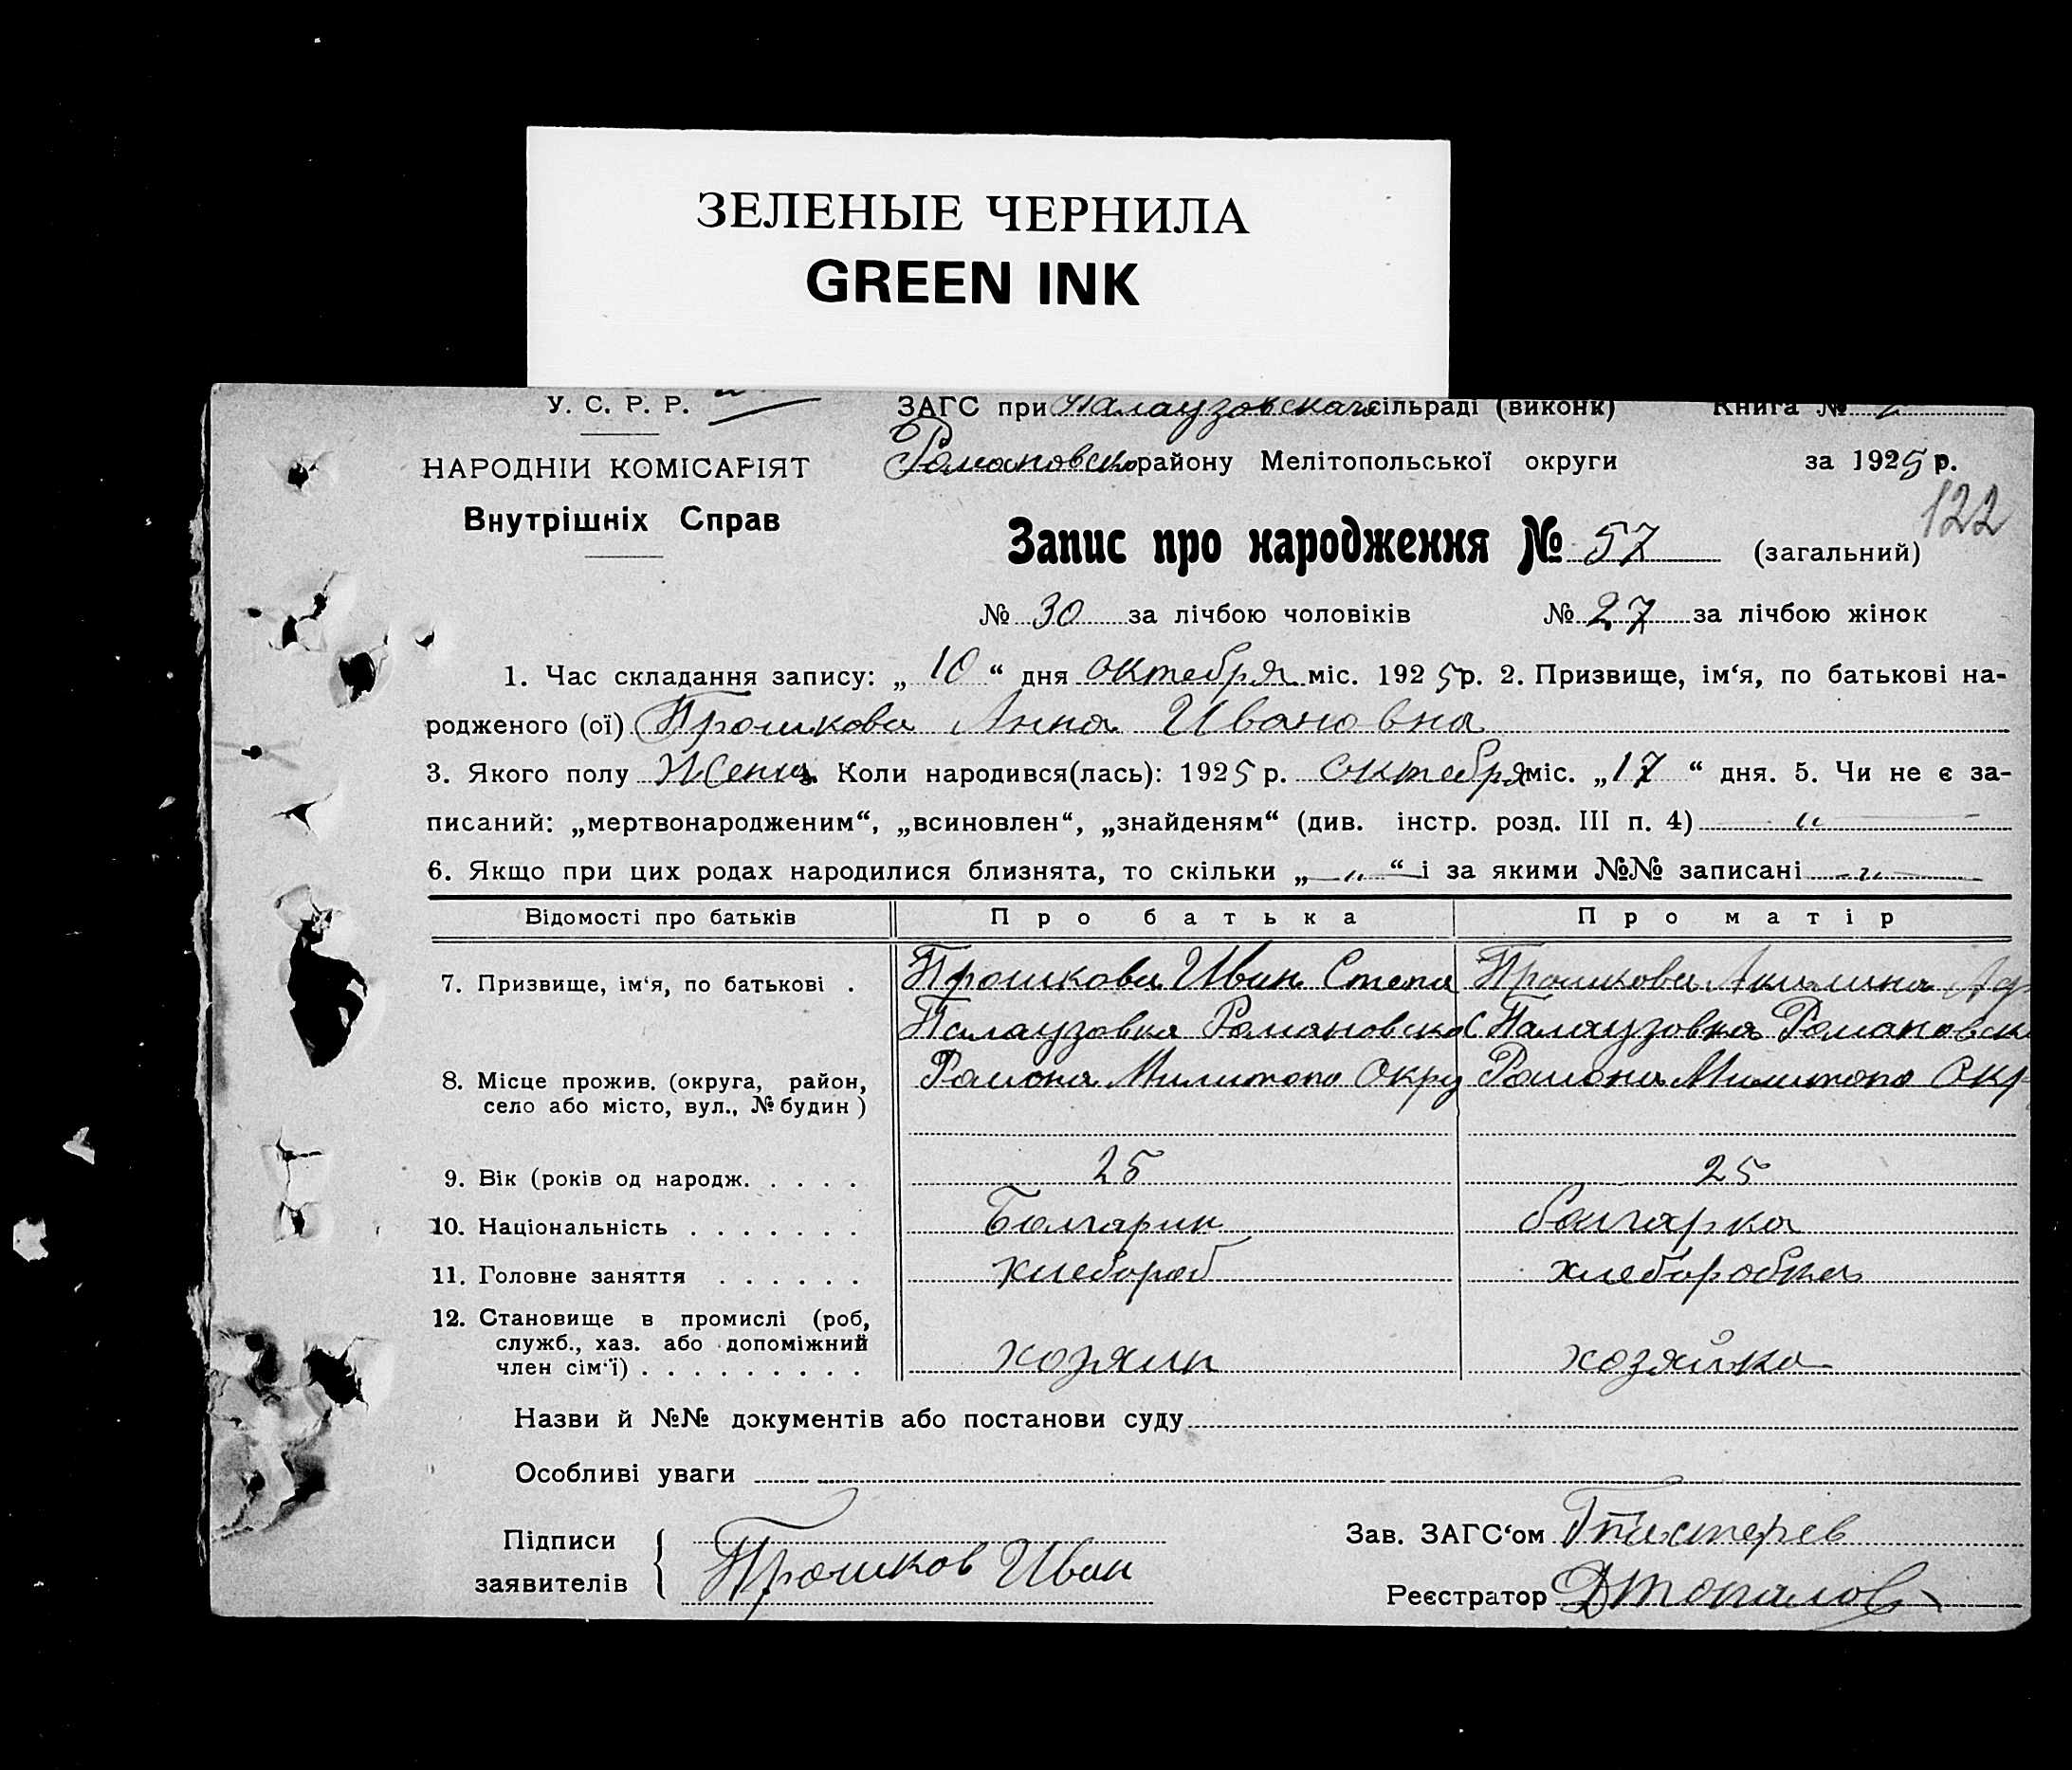 ЗЕЛЕНЫЕ ЧЕРНИЛА
GREEN INK
У. С. Р. Р.
ЗАГС при Палаузовскаг сільраді (виконк) Книга №
НАРОДНІЙ КОМІСАРІЯТ
Романовско району Мелітопольської округи за 1925 р.
Внутрішніх Справ
122
Запис про народження № 57 (загальний)
№ 30 за лічбою чоловіків № 27 за лічбою жінок
1. Час складання запису: „ 10 “ дня октебря міс. 1925 р. 2. Призвище, ім‘я, по батькові на-
родженого (ої) Прошкова Анна Ивановна
3. Якого полу Женщ. Коли народився(лась): 1925 р. октебря міс. „17 “ дня. 5. Чи не є за-
писаний: „мертвонародженим“, „всиновлен“, „знайденям“ (див. інстр. розд. III п. 4) — „ —
6. Якщо при цих родах народилися близнята, то скільки „— „ —“ і за якими №№ записані — „ —
Відомості про батьків Про батька Про матір
7. Призвище, ім‘я, по батькові . Прошкова Иван Степа Прошкова Акилина
Палаузовка Романовско С Палаузовка Романовск
8. Місце прожив. (округа, район, Раиона Милитопо Окру Раиона Милитопо Окр
село або місто, вул., № будин )
9. Вік (років од народж. . . . . 25 25
10. Національність . . . . . . . Болгарин болгарка
11. Головне заняття . . . . . . хлебороб хлебо­робка
12. Становище в промислі (роб,
служб., хаз. або допоміжний
член сім‘ї) . . . . . . . . . хозяин хозяйка
Назви й №№ документів або постанови суду
Особливі уваги
Підписи
заявителів Прошков Иван
Зав. ЗАГС‘ом
Реєстратор ДТопалов